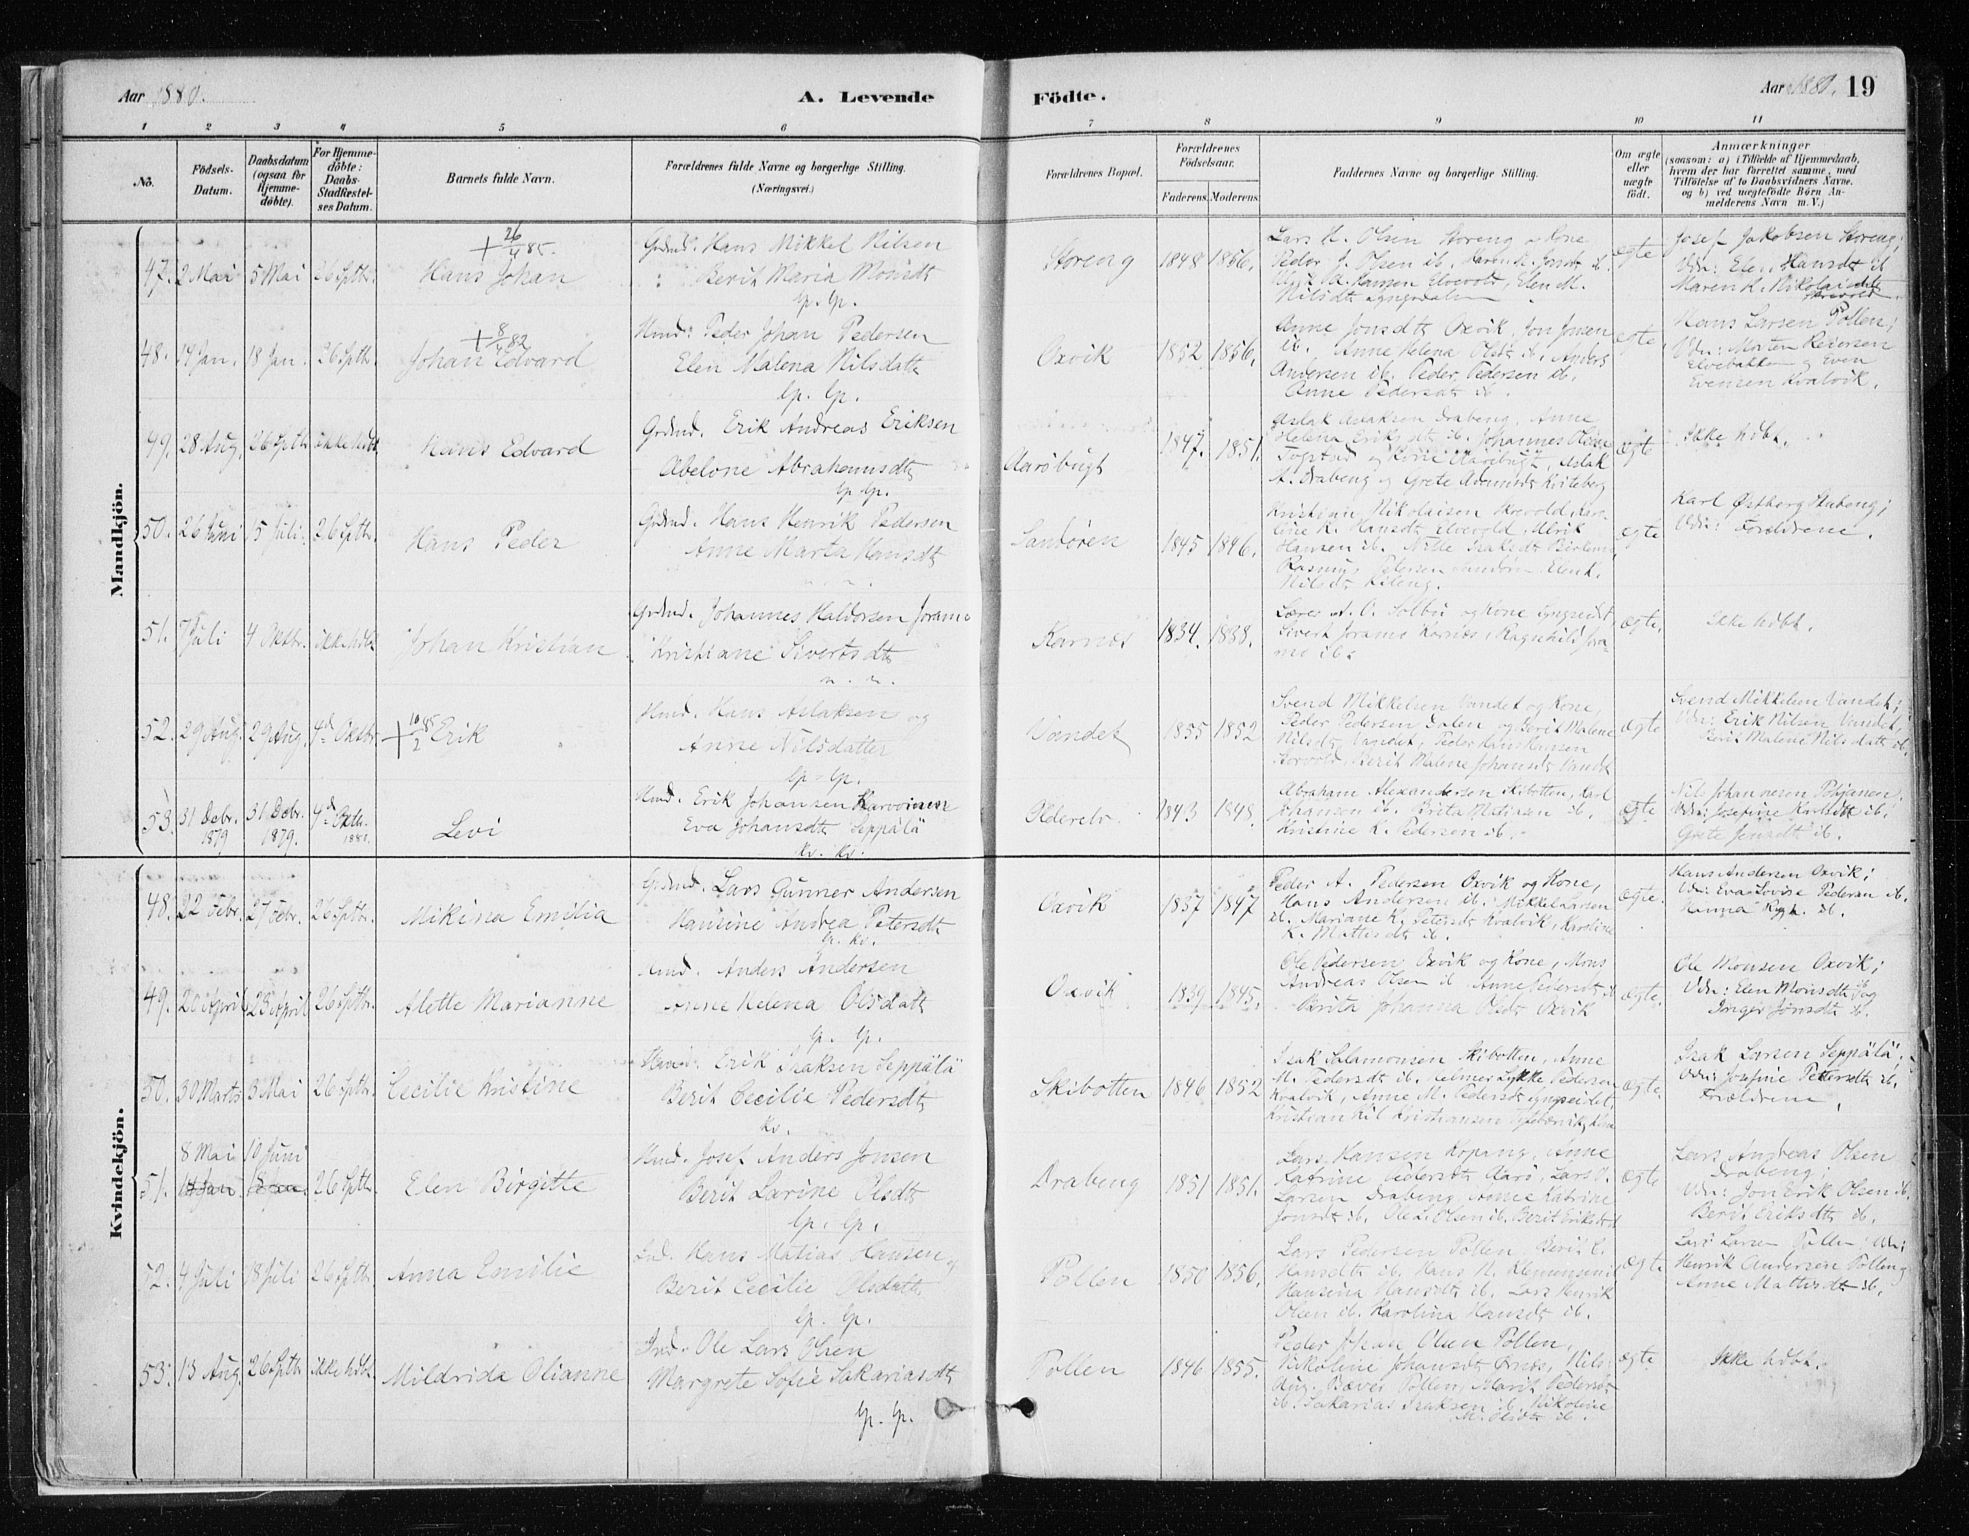 Aar 1880.
A. Levende
Födte.
Aar 1880.
19
1 2 3 4 5 6 7 8 9 10 11
No.
Födsels-
Datum.
Daabsdatum
(ogsaa for
Hjemme-
döbte).
For Hjemme-
döbte:
Daabs-
Stadfæstel-
ses Datum.
Barnets fulde Navn.
Forældrenes fulde Navne og borgerlige Stilling.
(Næringsvei.)
Forældrenes Bopæl.
Forældrenes
Födselsaar.
Faderens. Moderens.
Faddernes Navne og borgerlig Stilling.
Om ægte
eller
uægte
födt.
Anmærkninger
(saasom: a) i Tilfælde af Hjemmedaab,
hvem der har forrettet samme, med
Tilföielse af to Daabsvidners Navne.
og b) ved uægtefödte Börn An-
melderens Navn m. V.)
Mandkjön.
47. 2 Mai 5 Mai 26 Spthr.
+ 26/4 85
Hans Johan
Grdmd. Hans Mikkel Nilsen
Berit Maria Monsdt
lp. lp.
Storeng 1848 1856.
Lars H. Olsen Storeng og Kone,
Peder J. Olsen ib.
Nilsdt
ægte
Josef Jakobsen Storeng;
Vdn: Elen Hansdt ib
Maren K. Nikolaisdt
48. 14 Jan. 18 Jan. 26 Spthr.
+ 8/4 82
Johan Edvard
Hmd. Peder Johan Pedersen
Elen Malena Nilsdatt
lp. lp.
Oxvik 1852 1856.
Anne Jonsdtr Oxvik, Jon Jonsen
ib. Anne Helena Olsdt ib. Anders
Andersen ib. Peder Pedersen ib.
Anne Pedersdt ib.
ægte
Hans Larsen Pollen;
Vdn: Morten
Elvebakken og Even
Evensen Kvalvik.
49. 28 Aug. 26 Spth. ikke hdbt
Hans Edvard
Grdmd. Erik Andreas Eriksen
Abelone Abrahamsdt
lp. lp.
Aaröbugt 1847. 1851.
Aslak Aslaksen Drabeng, Anne
Helena Eriksdt ib. Johannes Olsen
A. Drabeng og Grete
ægte
Ikke hdbt.
50. 26 Juni 15 Juli. 26 Spthr.
Hans Peder
Grdmd. Hans Henrik Pedersen
Anne Marta Hansdt
n. n.
Sandören 1845 1846.
Kristian Nikolaisen
Hansen ib.
Rasmus Petersen Sandören Elen K.
Nilsdt
ægte
Karl Østberg
Vdn: Forældrene.
51. 7 Juli 4 Oktbr. ikke hdbt
Johan Kristian
Grdmd. Johannes Haldorsen Joramo
Kristiane Sivertsdt
n. n.
Karnæs 1834. 1838.
Lærer A. O. Solbu og Kone Lyngseidet,
Sivert Joramo Karnæs, Ragnhild Jora-
mo ib.
ægte.
Ikke hdbt.
52. 29 Aug. 29 Aug. 4de Oktbr
+ 10/2 85
Erik
Hmd. Hans Aslaksen og
Anne Nilsdatter
lp - lp.
Vandet 1855 1852
Svend Mikkelsen Vandet og Kone,
Peder Pedersen Dalen og Berit Malene
Nilsdt Vandet, Peder Hans Hansen
Storvold, Berit Malene Johansdt Vandet
ægte
Svend Mikkelsen Vandet;
Vdn: Erik Nilsen Vandet,
Berit Malene Nilsdatt ib.
53. 31 Debr. 1879 31 Debr. 1879. 4de Oktbr. 1880.
Levi
Hmd. Erik Johansen Karvoinen
Eva Johansdt Seppälä
kv. kv.
Olderelv. 1843 1848.
Abraham Alexandersen Skibotten, Karl
Johansen ib. Brita Matisen ib.
Kristine K. Pedersen ib.
ægte
Nils Johannesen Pohjanen,
Vdn: Josefine Karlsdt ib.
Grete Jensdt ib.
Kvindekjön.
48. 22 Febr. 27 Febr. 26 Spthr.
Mikina Emilia
Grdmd. Lars Gunner Andersen
Hansine Andrea Petersdt
lp. kv.
Oxvik 1837 1847
Peder A. Pedersen Oxvik og Kone,
Hans Andersen ib. Mikkel Larsen
ib. Mariane K. Petersdt Kvalvik, Karoline
K. Mattisdt ib.
ægte.
Hans Andersen Oxvik;
Vdn: Eva Lovise Pedersen ib.
Hanna ib.
49. 20 April 25 April 26 Spthr.
Alette Marianne
Hmd. Anders Andersen
Anne Helena Olsdatt
lp. lp.
Oxvik 1839 1845.
Ole Pedersen Oxvik og Kone, Mons
Andreas Olsen ib Anne Pedersdt ib
Brita Johanna Olsdt Oxvik
ægte.
Ole Monsen Oxvik;
Vdn: Elen Monsdt ib og
Inger Jonsdt ib.
50. 30 Marts 3 Mai 26 Spthr.
Cecilie Kristine
Erik Isaksen Seppälä
Berit Cecilie Pedersdt
kv.
Skibotten 1846 1852
Isak Salamonsen Skibotten, Anne
M. Pedersdt ib. Helmer Lykke Pedersen
Kvalvik, Anne M. Pedersdt Lyngseidet,
Kristian Kil Kristiansen
ægte.
Isak Larsen Seppälä.
Vdn: Josefine Petersdt ib.
Forældrene.
8 Mai 10 Juni
51. 26 Spthr.
Elen Birgitte
Hmd. Josef Anders Jonsen
Berit Larine Olsdt
lp. lp.
Drabeng 1851 1851.
Lars Hansen Kopang, Anne
Katrine Pedersdt Aarö, Lars
Larsen Drabeng, Anne Katrine
Jonsdt ib. Ole L. Olsen ib. Berit Eriksdt
ægte
Lars Andreas Olsen
Drabeng;
Vdn: Jon Erik Olsen ib.
Berit Eriksdt ib.
52. 4 Juli 18 Juli 26 Spthr.
Anna Emilie
Ind. Hans Matias Hansen og
Berit Cecilie Olsdatt
lp. lp.
Pollen 1850 1856.
Lars Pedersen Pollen, Berit E.
Hansdt ib. Hans N. Klemensen
Hansina Hansdt ib. Lars Henrik
Olsen ib. Karolina Hansdt ib.
ægte
Lars Larsen Pollen Vdn:
Henrik Andersen Pollen og
Anne Mathisdt ib.
53. 13 Aug. 26 Spth. ikke hdbt.
Mildrida Olianne
Ind. Ole Lars Olsen
Margrete Sofie Sakariasdt
lp. lp.
Pollen 1846 1855.
Peder Johan Olsen Pollen,
Nikoline Johansdt Ornæs, Nils
Aug. Bæver Pollen, Marit Pedersdt
ib. Sakarias Isaksen ib. Nikoline
M. Olsdt ib.
ægte
Ikke hdbt.